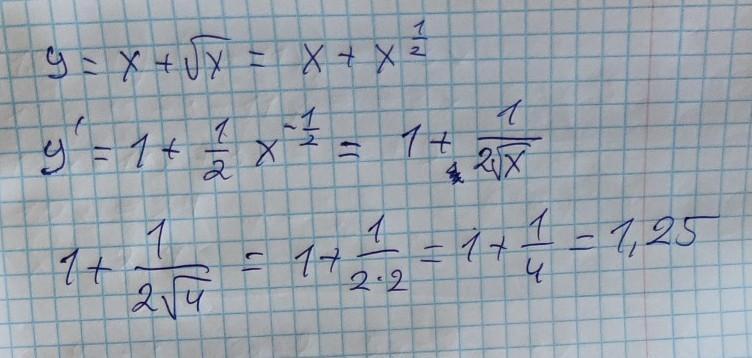 y = x + √x = x + x^(1/2)
y' = 1 + 1/2 x^(-1/2) = 1 + 1/(2√x)
1 + 1/(2√4) = 1 + 1/(2·2) = 1 + 1/4 = 1,25